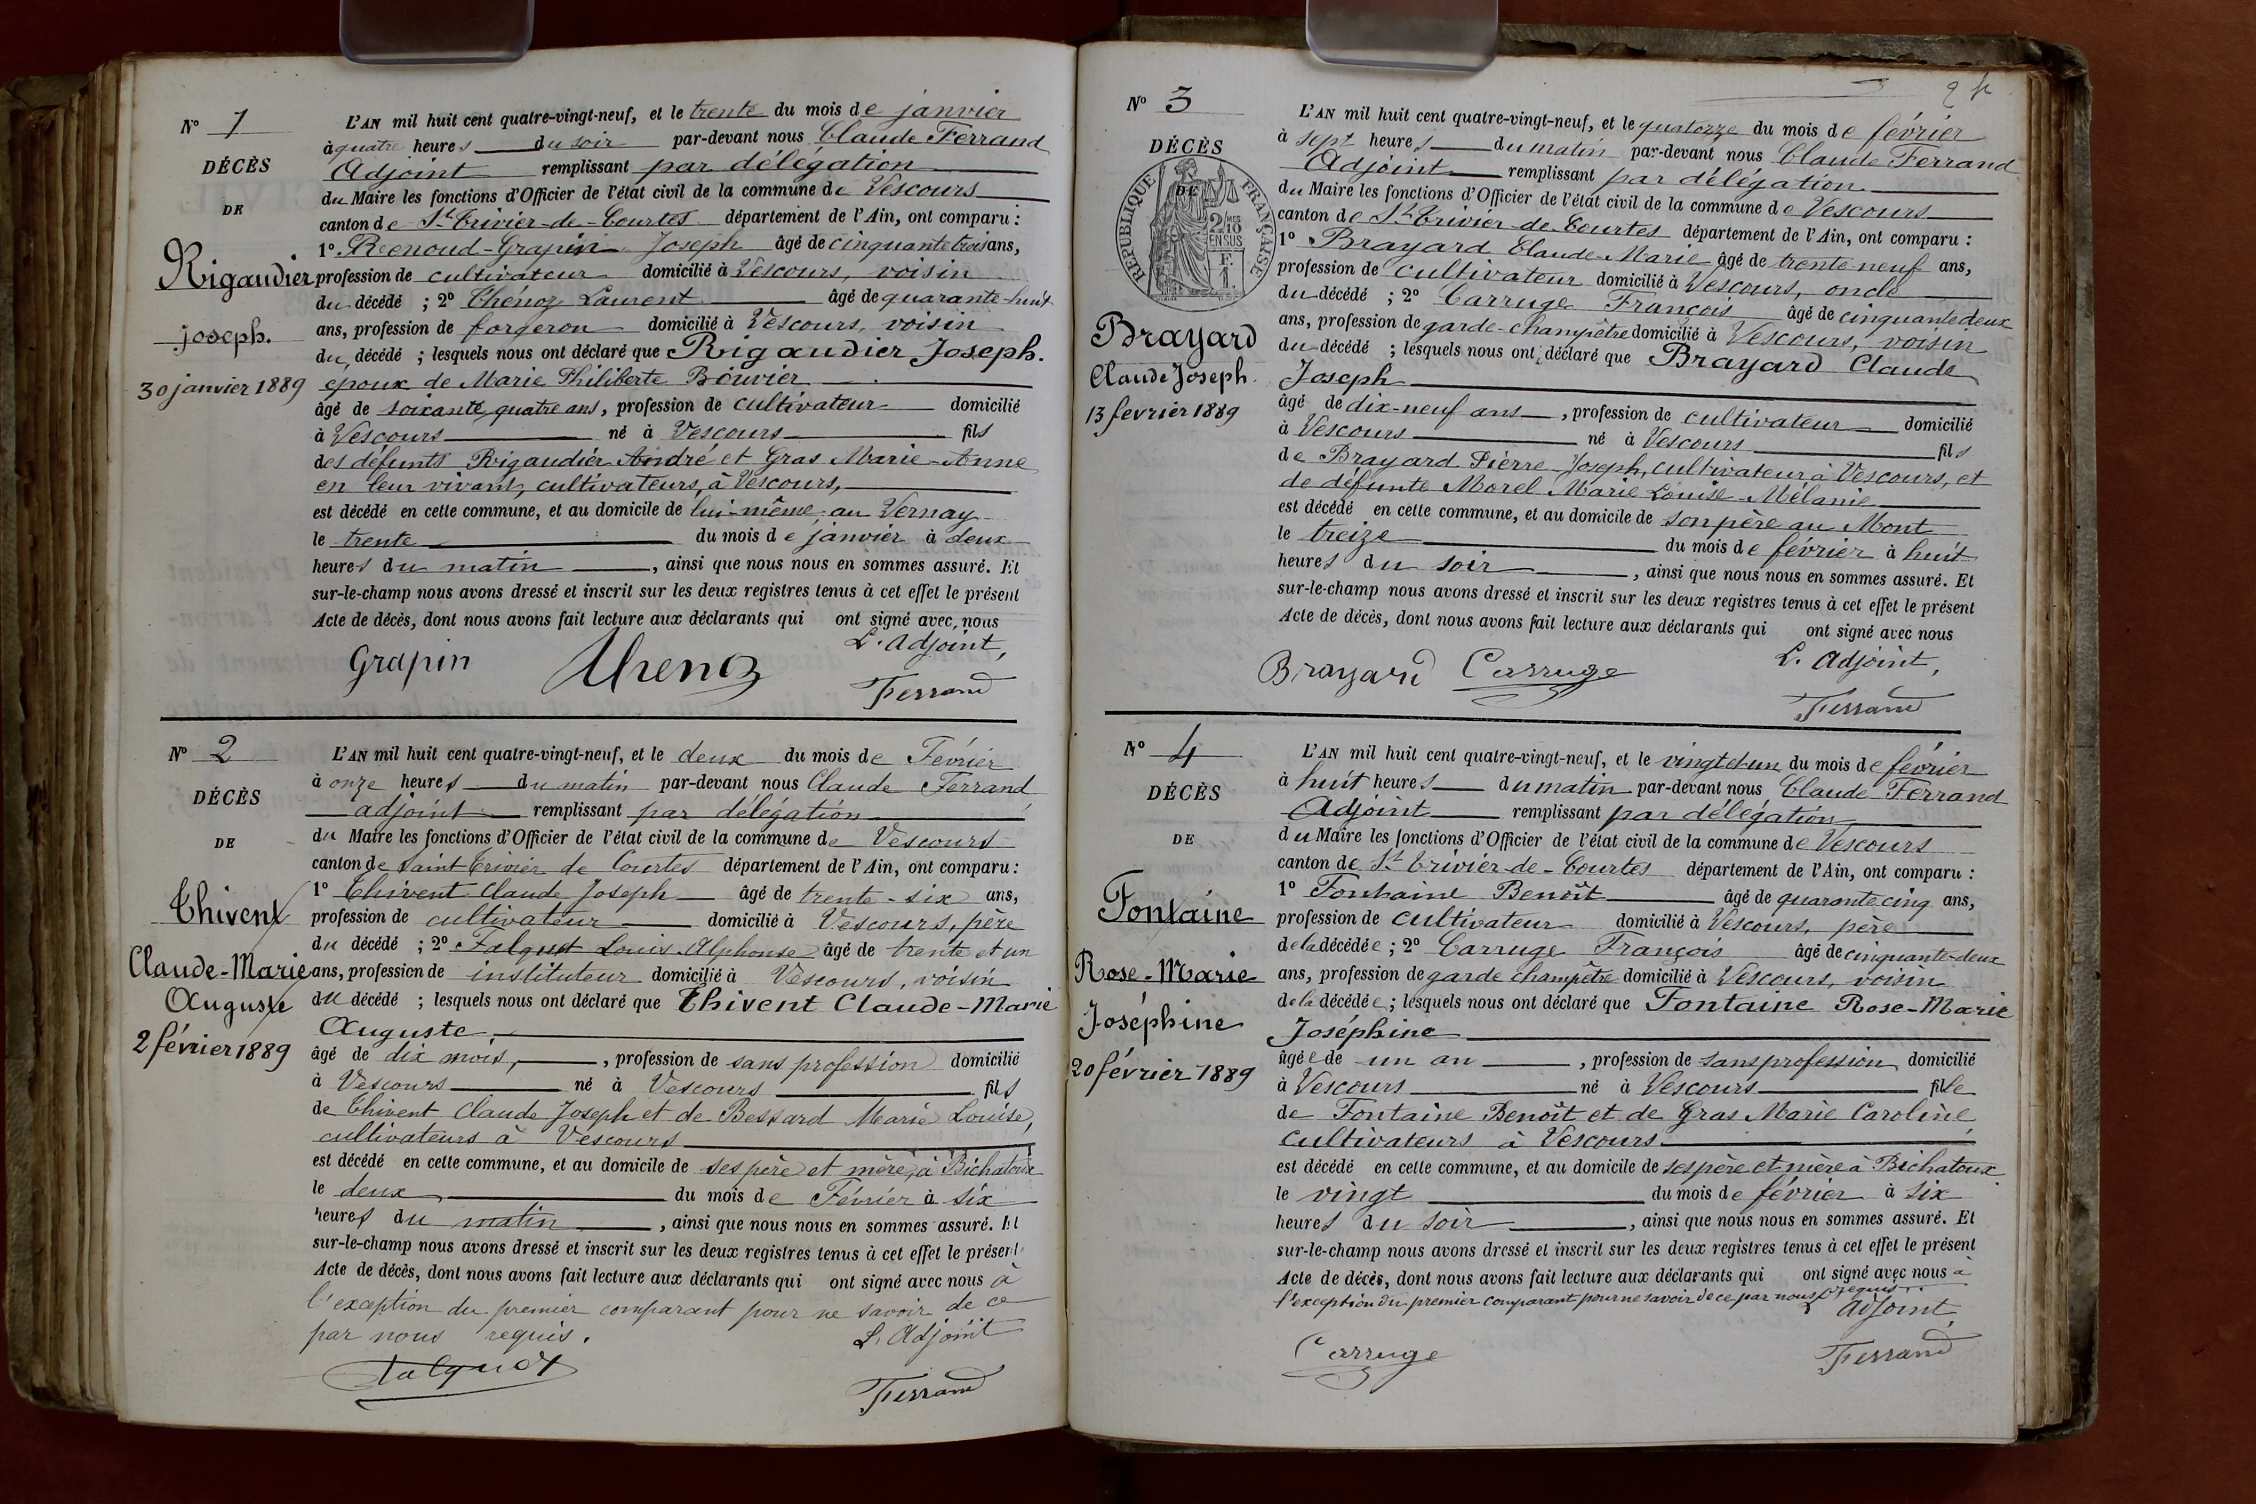 N° 1
DÉCÈS
DE
Rigaudier
joseph.
30 janvier 1889
L'AN mil huit cent quatre-vingt-neuf, et le trente du mois de janvier
à quatre heures du soir par-devant nous Claude Ferrand
Adjoint remplissant par délégation
du Maire les fonctions d'Officier de l'état civil de la commune de Vescours
canton de St Trivier-de-Courtes département de l'Ain, ont comparu :
1° Renoud-Grapin Joseph âgé de cinquante trois ans,
profession de cultivateur domicilié à Vescours, voisin
du décédé ; 2° Thénoz Laurent âgé de quarante-huit
ans, profession de forgeron domicilié à Vescours, voisin
du décédé ; lesquels nous ont déclaré que Rigaudier Joseph.
époux de Marie Philiberte Bouvier
âgé de soixante quatre ans, profession de cultivateur domicilié
à Vescours né à Vescours fils
des défunts Rigaudier André et Gras Marie-Anne
en leur vivant, cultivateurs, à Vescours,
est décédé en cette commune, et au domicile de lui-même, au Vernay
le trente du mois de janvier à deux
heures du matin, ainsi que nous nous en sommes assuré. Et
sur-le-champ nous avons dressé et inscrit sur les deux registres tenus à cet effet le présent
Acte de décès, dont nous avons fait lecture aux déclarants qui ont signé avec nous
L'Adjoint,
Grapin Thenoz
Ferrand
N° 2
DÉCÈS
DE
Thivent
Claude-Marie
Auguste
2 février 1889
L'AN mil huit cent quatre-vingt-neuf, et le deux du mois de Février
à onze heures du matin par-devant nous Claude Ferrand
adjoint remplissant par délégation
du Maire les fonctions d'Officier de l'état civil de la commune de Vescours
canton de Saint Trivier de Courtes département de l'Ain, ont comparu :
1° Thivent Claude Joseph âgé de trente-six ans,
profession de cultivateur domicilié à Vescours, père
du décédé ; 2° Falquet Louis Alphonse âgé de trente et un
ans, profession de instituteur domicilié à Vescours, voisin
du décédé ; lesquels nous ont déclaré que Thivent Claude-Marie
Auguste,
âgé de dix mois, , profession de sans profession domicilié
à Vescours né à Vescours fils
de Thivent Claude Joseph et de Bessard Marie Louise,
cultivateurs à Vescours
est décédé en cette commune, et au domicile de ses père et mère, à Bichatoux
le deux du mois de Février à six
heures du matin, ainsi que nous nous en sommes assuré. Et
sur-le-champ nous avons dressé et inscrit sur les deux registres tenus à cet effet le présent
Acte de décès, dont nous avons fait lecture aux déclarants qui ont signé avec nous à
l'exception du premier comparant pour ne savoir de ce
par nous requis.
L'Adjoint
Falquet
Ferrand
N° 3
DÉCÈS
DE
RÉPUBLIQUE FRANÇAISE
2/10 EN SUS
Brayard
Claude Joseph.
13 fevrier 1889
L'AN mil huit cent quatre-vingt-neuf, et le quatorze du mois de février
à sept heures du matin par-devant nous Claude Ferrand
Adjoint remplissant par délégation
du Maire les fonctions d'Officier de l'état civil de la commune de Vescours
canton de St Trivier de Courtes département de l'Ain, ont comparu :
1° Brayard Claude-Marie âgé de trente neuf ans,
profession de cultivateur domicilié à Vescours, oncle
du décédé ; 2° Carruge François âgé de cinquante deux
ans, profession de garde-champêtre domicilié à Vescours, voisin
du décédé ; lesquels nous ont déclaré que Brayard Claude
Joseph
âgé de dix-neuf ans, profession de cultivateur domicilié
à Vescours né à Vescours fils
de Brayard Pierre-Joseph, cultivateur à Vescours, et
de défunte Morel Marie Louise-Mélanie
est décédé en cette commune, et au domicile de son père au Mont
le treize du mois de février à huit
heures du soir, ainsi que nous nous en sommes assuré. Et
sur-le-champ nous avons dressé et inscrit sur les deux registres tenus à cet effet le présent
Acte de décès, dont nous avons fait lecture aux déclarants qui ont signé avec nous
L'Adjoint,
Brayard Carruge
Ferrand
N° 4
DÉCÈS
DE
Fontaine
Rose-Marie
Joséphine
20 février 1889
L'AN mil huit cent quatre-vingt-neuf, et le vingt et un du mois de février
à huit heures du matin par-devant nous Claude Ferrand
Adjoint remplissant par délégation
du Maire les fonctions d'Officier de l'état civil de la commune de Vescours
canton de St Trivier-de-Courtes département de l'Ain, ont comparu :
1° Fontaine Benoît âgé de quarante cinq ans,
profession de cultivateur domicilié à Vescours, père
de la décédée ; 2° Carruge François âgé de cinquante-deux
ans, profession de garde champêtre domicilié à Vescours, voisin
de la décédée ; lesquels nous ont déclaré que Fontaine Rose-Marie
Joséphine
âgée de un an, profession de sans profession domicilié
à Vescours né à Vescours fille
de Fontaine Benoît et de Gras Marie Caroline
cultivateurs à Vescours
est décédé en cette commune, et au domicile de ses père et mère à Bichatoux
le vingt du mois de février à six
heures du soir, ainsi que nous nous en sommes assuré. Et
sur-le-champ nous avons dressé et inscrit sur les deux registres tenus à cet effet le présent
Acte de décès, dont nous avons fait lecture aux déclarants qui ont signé avec nous à
l'exception du premier comparant pour ne savoir de ce par nous requis.
L'Adjoint
Carruge
Ferrand